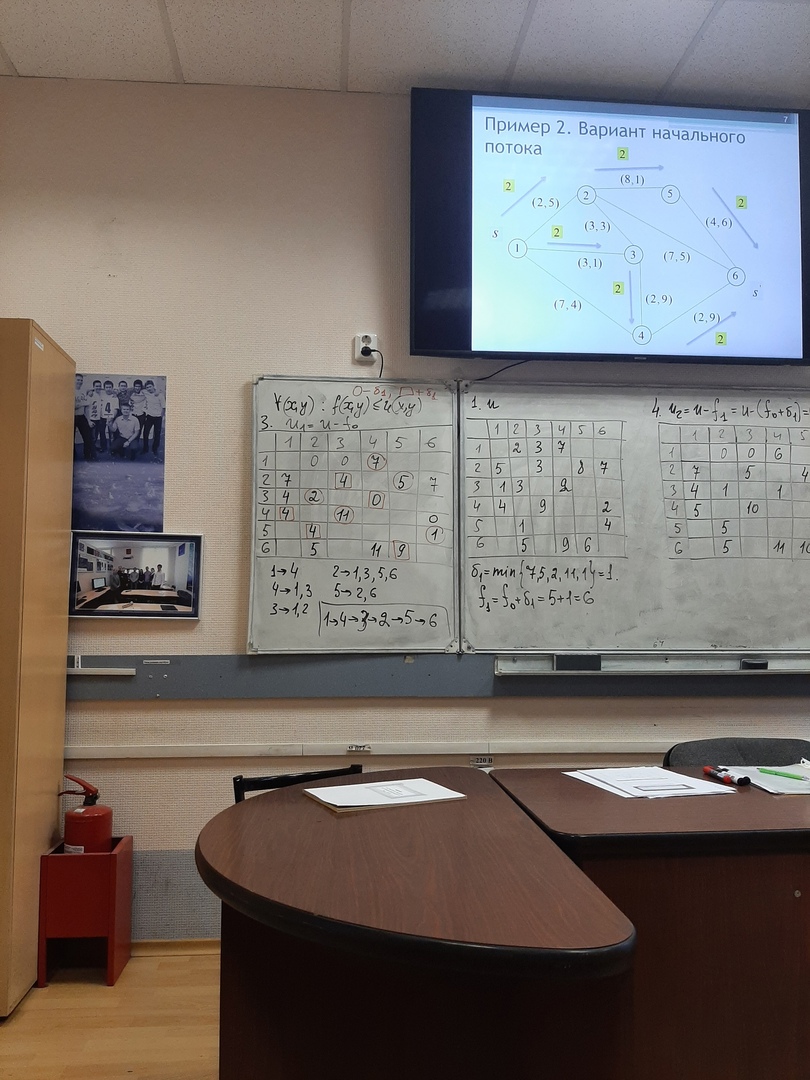 7
Пример 2. Вариант начального
потока
2
(8,1)
2
2
5
2
(2,5)
(4,6)
s
2
(3,3)
1
3
(7,5)
(3,1)
6
2
s'
(7,4)
(2,9)
(2,9)
4
2
0−δ₁, □+δ₁
∀(x,y) : f(x,y) ≤ u(x,y)
3. u₁ = u − f₀
1 2 3 4 5 6
1 0 0 7
2 7 4 5 7
3 4 2 0
4 4 11 0
5 4 1
6 5 11 9
1→4 2→1,3,5,6
4→1,3 5→2,6
3→1,2
1→4→3→2→5→6
1. u
1 2 3 4 5 6
1 2 3 7
2 5 3 8 7
3 1 3 2
4 4 9 2
5 1 4
6 5 9 6
δ₁ = min{7,5,2,11,1} = 1.
f₁ = f₀ + δ₁ = 5+1 = 6
4. u₂ = u − f₁ = u − (f₀+δ₁) =
1 2 3 4 5
1 0 0 6
2 7 5 4
3 4 1 1
4 5 10
5 5
6 5 11 10
220 В